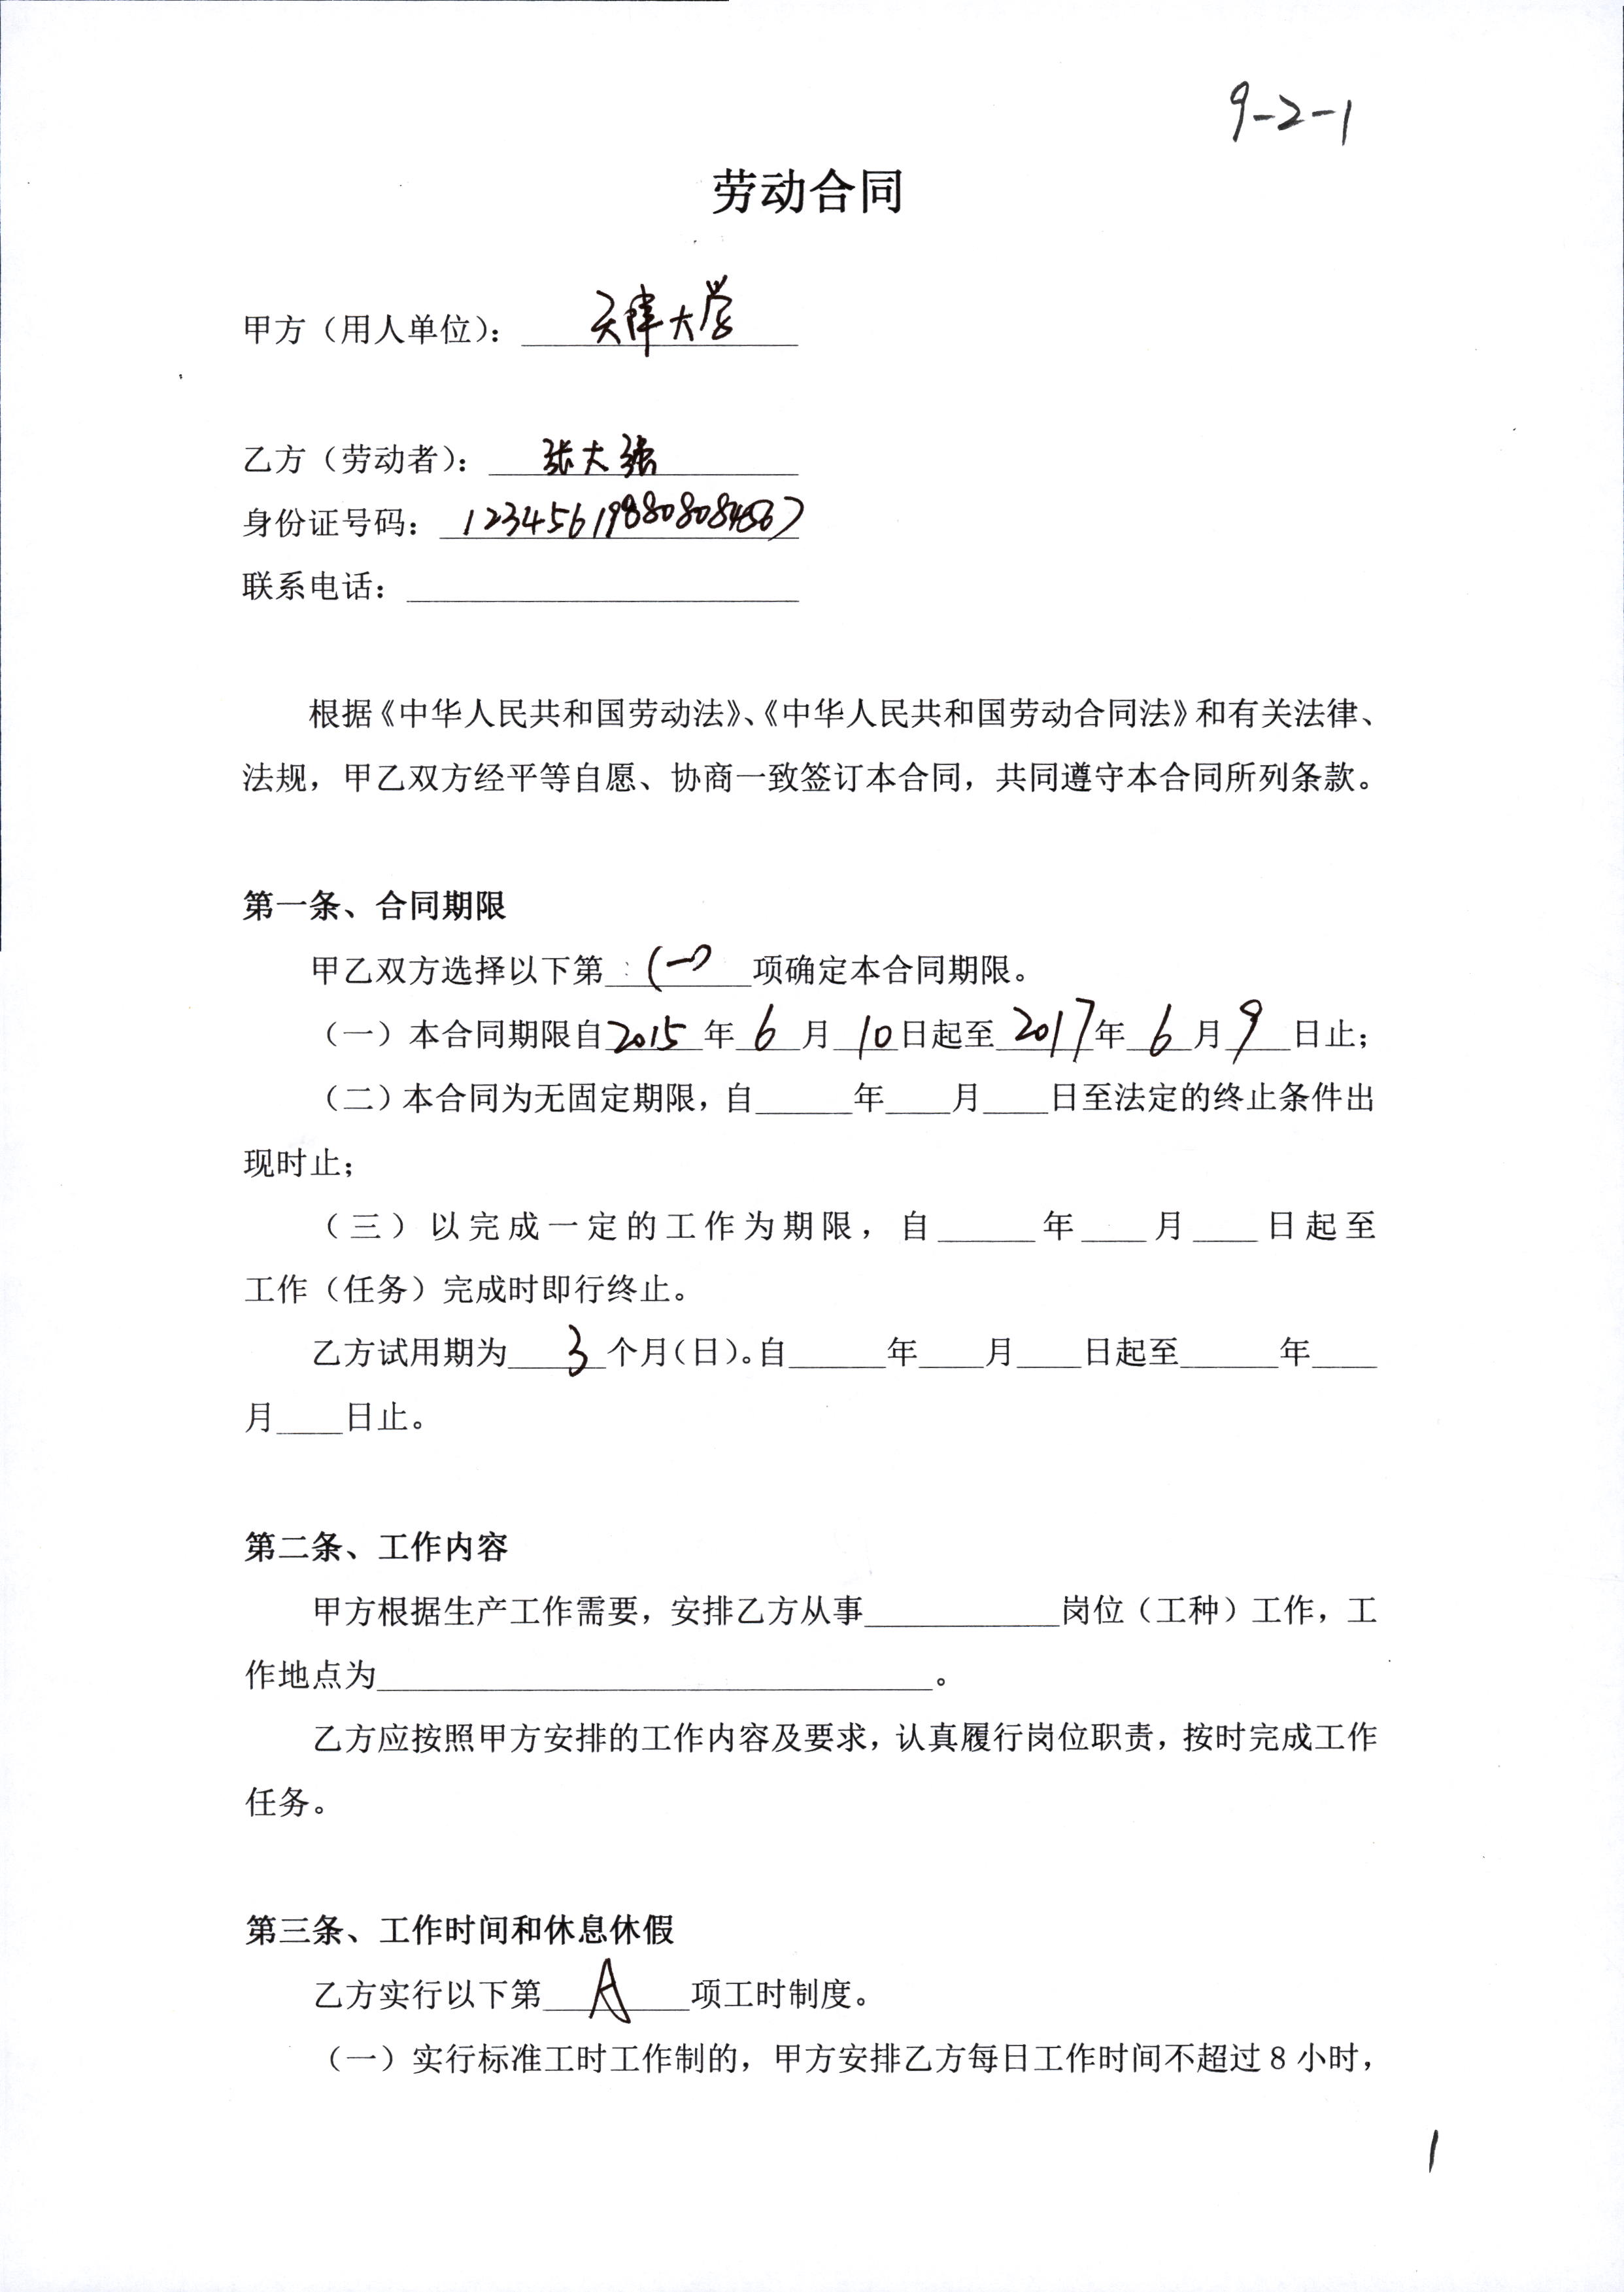 9-2-1
劳动合同
甲方（用人单位）：天津大学
乙方（劳动者）：张大强
身份证号码：123456198808084567
联系电话：
根据《中华人民共和国劳动法》、《中华人民共和国劳动合同法》和有关法律、
法规，甲乙双方经平等自愿、协商一致签订本合同，共同遵守本合同所列条款。
第一条、合同期限
甲乙双方选择以下第(一)项确定本合同期限。
（一）本合同期限自2015年6月10日起至2017年6月9日止；
（二）本合同为无固定期限，自______年____月____日至法定的终止条件出
现时止；
（三）以完成一定的工作为期限，自______年____月____日起至
工作（任务）完成时即行终止。
乙方试用期为3个月（日）。自______年____月____日起至______年____
月____日止。
第二条、工作内容
甲方根据生产工作需要，安排乙方从事____________岗位（工种）工作，工
作地点为__________________________________。
乙方应按照甲方安排的工作内容及要求，认真履行岗位职责，按时完成工作
任务。
第三条、工作时间和休息休假
乙方实行以下第A项工时制度。
（一）实行标准工时工作制的，甲方安排乙方每日工作时间不超过8小时，
1